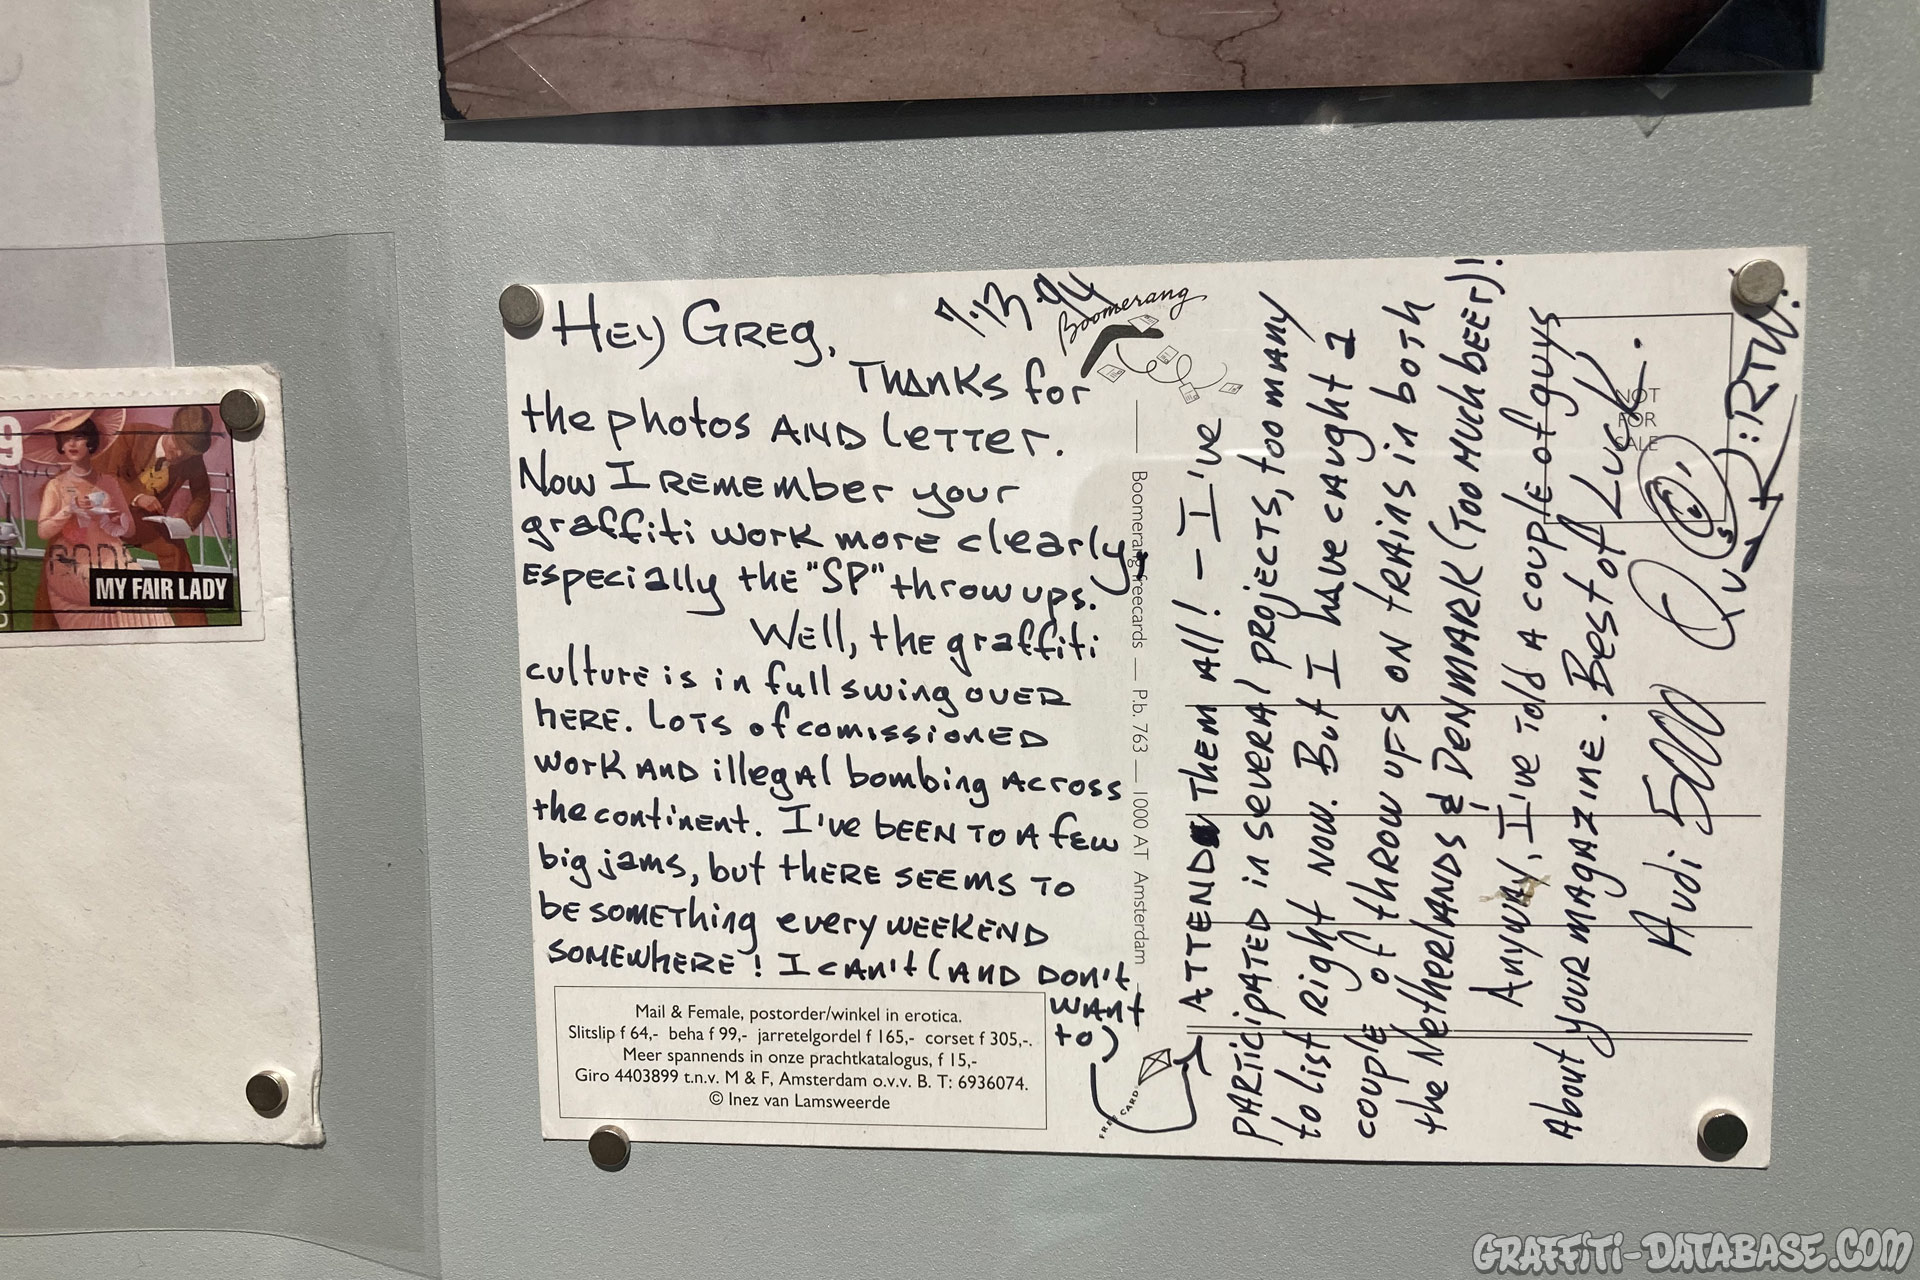 9
MY FAIR LADY
7.13.94
Hey Greg,
Thanks for
the photos and letter.
Now I remember your
graffiti work more clearly,
especially the "SP" throw ups.
Well, the graffiti
culture is in full swing over
here. Lots of comissioned
work and illegal bombing across
the continent. I've been to a few
big jams, but there seems to
be something every weekend
somewhere! I can't (and don't
want
to)
Mail & Female, postorder/winkel in erotica.
Slitslip f 64,- beha f 99,- jarretelgordel f 165,- corset f 305,-.
Meer spannends in onze prachtkatalogus, f 15,-
Giro 4403899 t.n.v. M & F, Amsterdam o.v.v. B. T: 6936074.
© Inez van Lamsweerde
FREE CARD
Boomerang
Boomerang freecards — P.b. 763 — 1000 AT Amsterdam
attend them all! - I've
participated in several projects, too many
to list right now. But I have caught a
couple of throw ups on trains in both
the Netherlands & Denmark (too much beer)!
Anyway, I've told a couple of guys
about your magazine. Best of Luck.
Audi 5000
NOT
FOR
SALE
GRAFFITI-DATABASE.COM